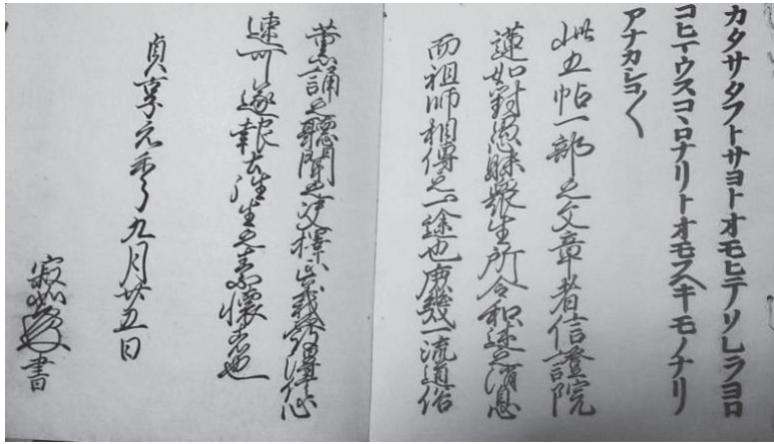 カタサタフトサヨトオモヒテソレヲヨロ
コヒテウスコヽロナリトオモフヘキモノナリ
アナカシコ〱
此五帖一部之文章者信證院
蓮如對愚昧衆生所令和述之消息
而祖師相傳之一途也庶幾一流道俗
薫誦之聽聞之
速可遂報土往生之素懷者也
貞享元年九月廿五日
寂如 書